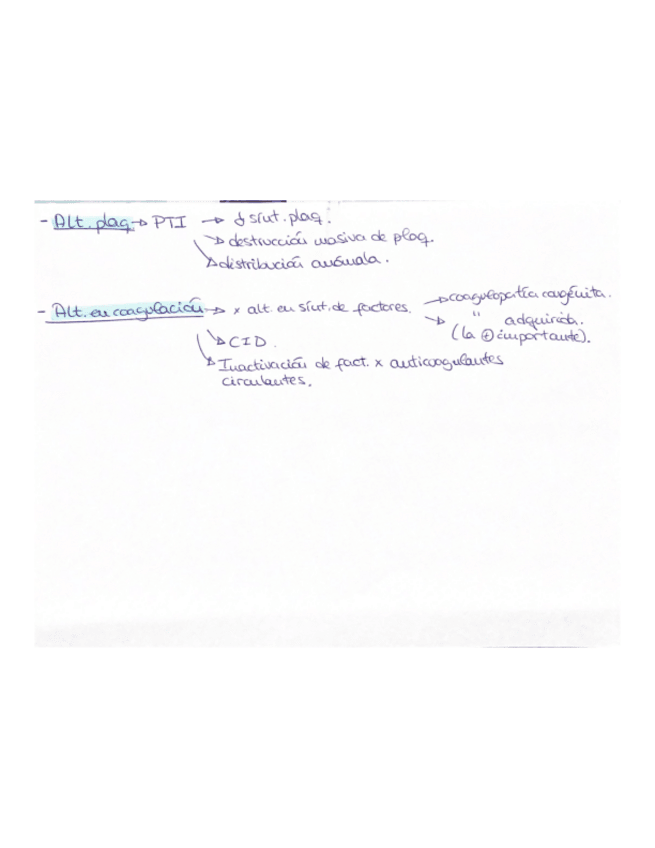 - Alt. plaq → PTI → ↓ sínt. plaq.
→ destrucción masiva de plaq.
→ distribución anómala.
- Alt. en coagulación → x alt. en sínt. de factores. → coagulopatía congénita.
→ " adquirida.
(la ⊕ importante).
→ CID.
→ Inactivación de fact. x anticoagulantes
circulantes.